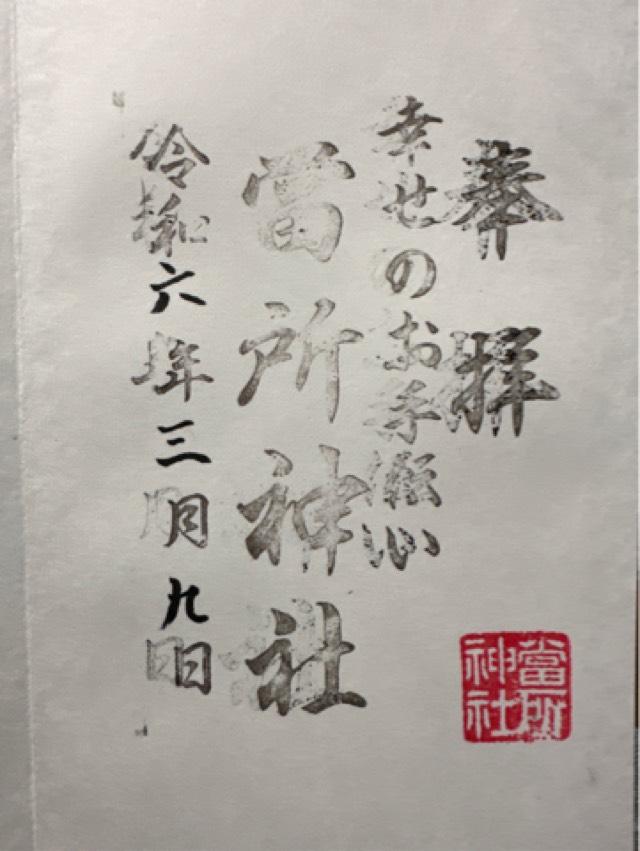 奉拝
幸せのお手傳い
當所神社
令和六年三月九日
當所
神社